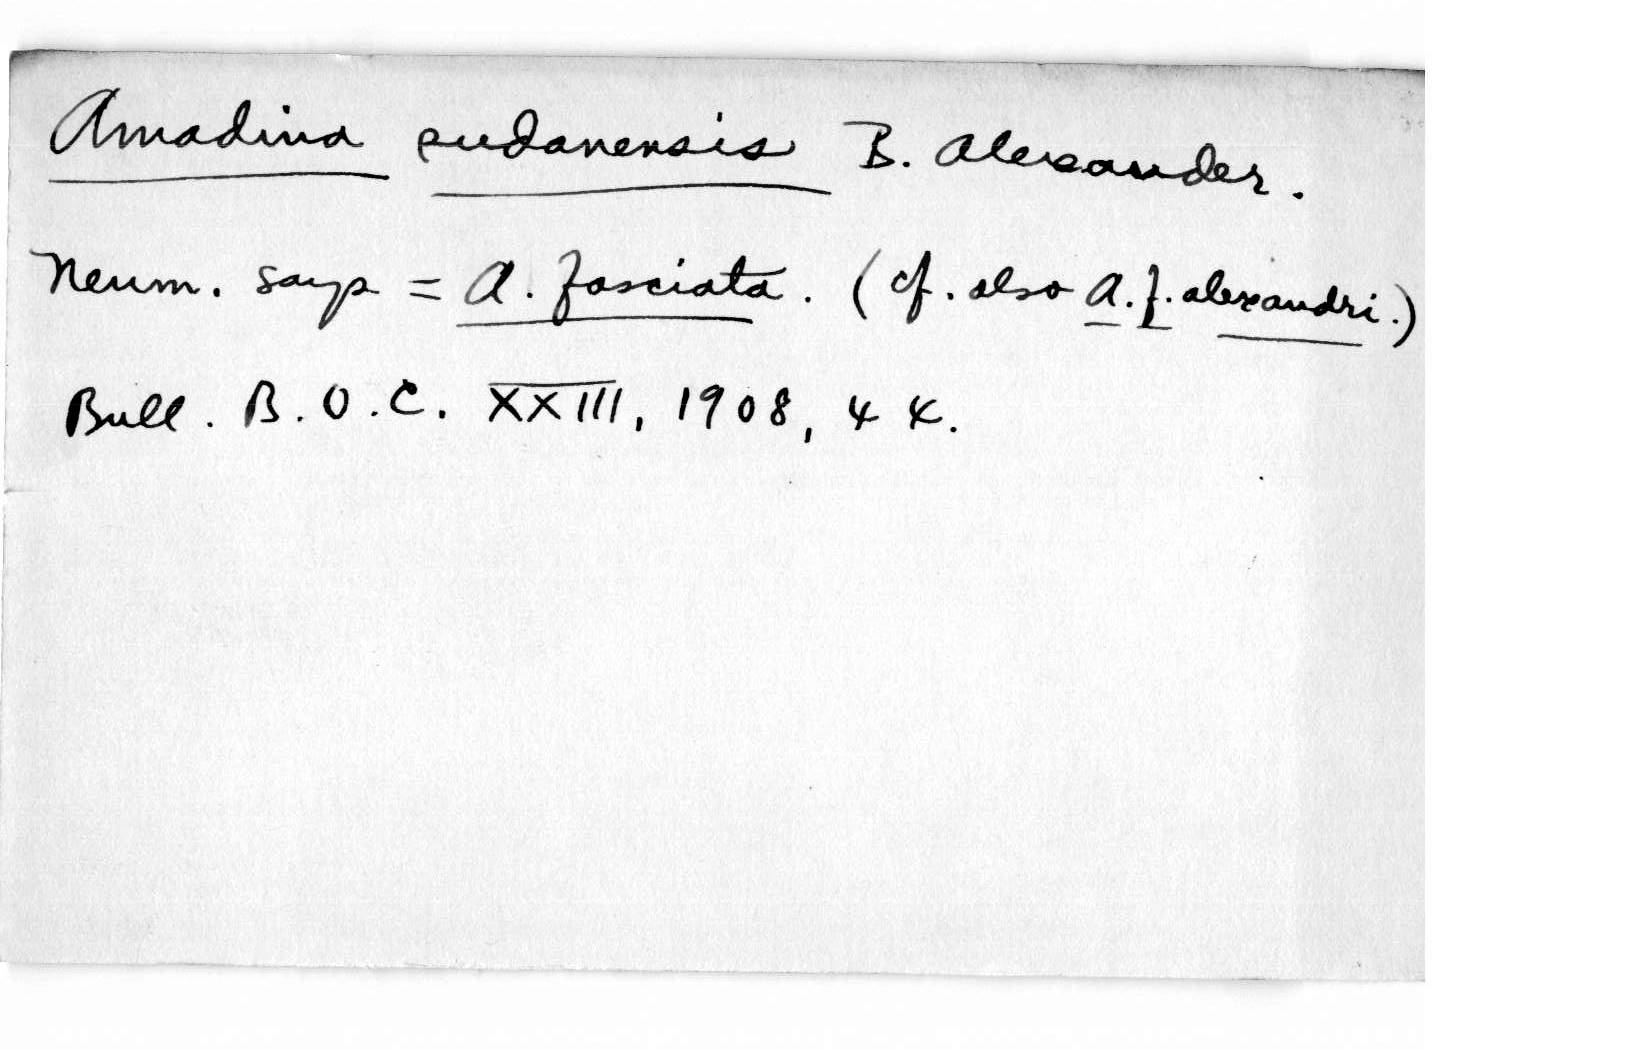 Amadina sudanensis B. Alexander.
Neum. says = A. fasciata. (cf. also A. f. alexandri.)
Bull. B.O.C. XXIII, 1908, 44.